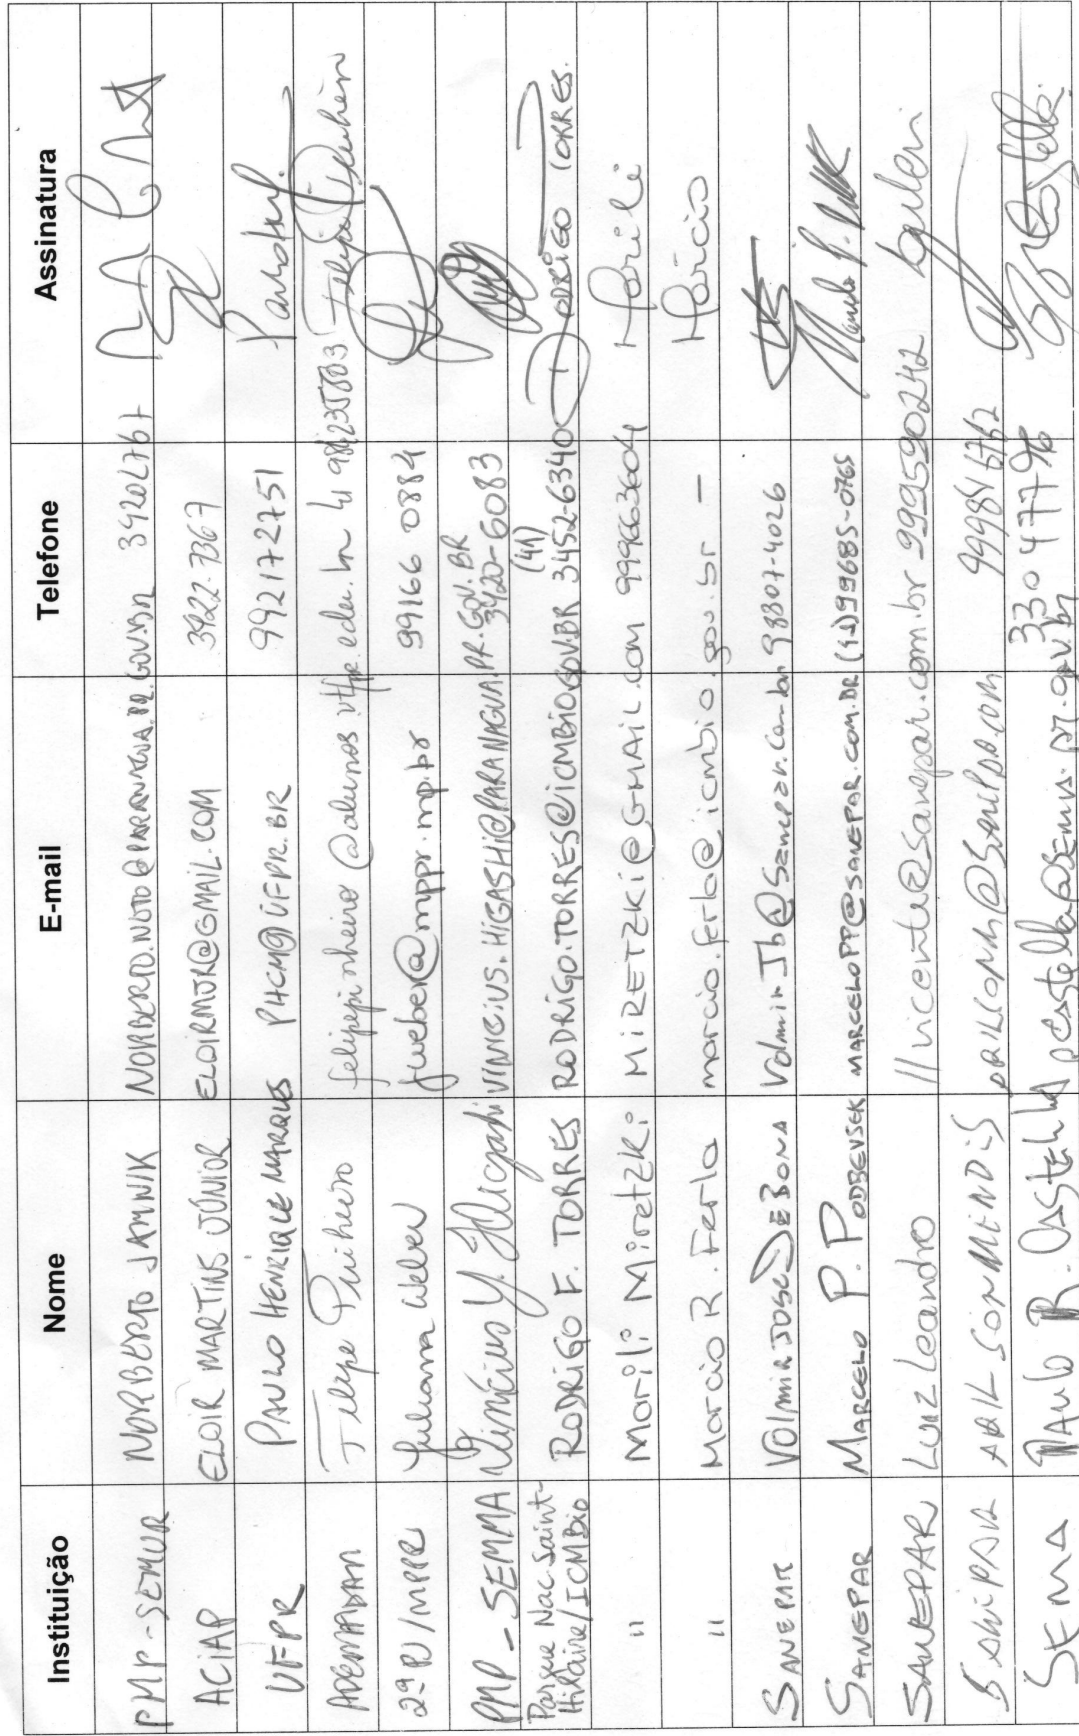 Instituição Nome E-mail Telefone Assinatura
PMP-SEMUR NORBERTO JAMNIK
ACIAP ELOIR MARTINS JÚNIOR ELOIRMJR@GMAIL.COM 3422-7367
UFPR PAULO HENRIQUE MARQUES PHCM@UFPR.BR 992172751
ADEMADAN Felipe Pinheiro felipepinheiro@alunos.utfpr.edu.br Felipe Pinheiro
2ª PJ/MPPR Juliana Weber jweber@mppr.mp.br 99166 0884
PMP-SEMMA Vinícius Y. Higashi VINICIUS.HIGASHI@PARANAGUA.PR.GOV.BR 3420-6083
Parque Nac Saint-
Hilaire/ICMBio RODRIGO F. TORRES RODRIGO.TORRES@ICMBIO.GOV.BR (41) 3452-6340 RODRIGO TORRES.
" Marili Miretzki MIRETZKI@GMAIL.COM 99963604 Marili
" Marcio R. Ferla marcio.ferla@icmbio.gov.br – Marcio
SANEPAR VOlmiR JOSE DEBONA VolmirJb@Sanepar.com.br 98807-4026
SANEPAR MARCELO P. PODBEVSEK MARCELOPP@SANEPAR.COM.BR
SANEPAR Luiz Leandro llvicente@sanepar.com.br 999590242
999846762
SEMA PAULO R. CASTELLA pcastella@sema.pr.gov.br 3304 7796